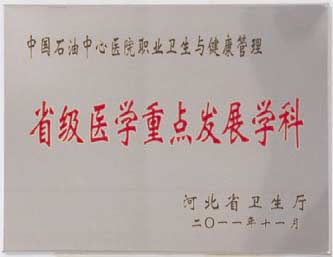 中国石油中心医院职业卫生与健康管理
省级医学重点发展学科
河北省卫生厅
二〇一一年十一月